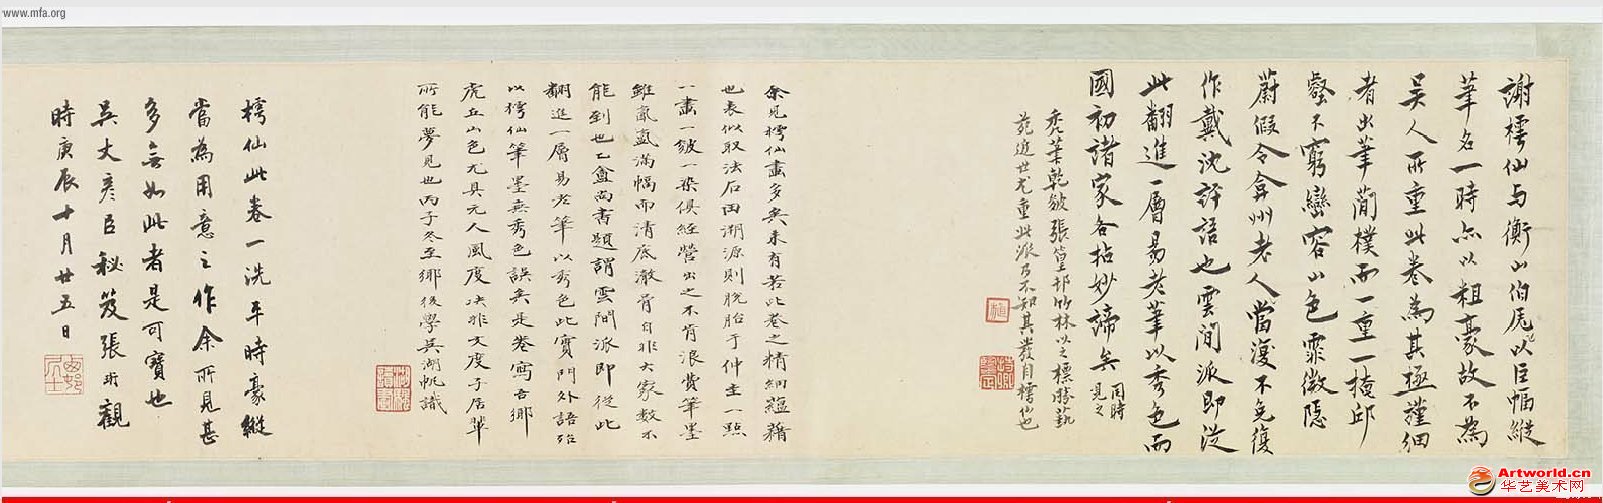 www.mfa.org
謝樗仙与衡山伯虎以巨幅縱
筆名一時亦以粗豪故不為
吳人所重此卷為其極謹細
者出筆簡樸而一重一掩邱
壑不窮巒容山色霏微隱
蔚假令弇州老人當復不免復
作戴沈諍語也雲間派即從
此翻進一層易老筆以秀色而
國初諸家各拈妙諦矣 同時見之
禿筆乾皴張篁邨竹林以之標勝藝
苑近世尤重此派乃不知其發自樗也
余見樗仙畫多矣未有若此卷之精細蘊藉
也表似取法石田溯源則脫胎于仲圭一點
一畫一皴一染俱經營出之不肯浪費筆墨
雖氤氳滿幅而清底澈骨自非大家數不
能到也乙盦尚書題謂雲間派即從此
翻進一層易老筆以秀色此實門外語殆
以樗仙筆墨無秀色誤矣是卷寫吾鄉
虎丘山色尤具元人風度决非文度子居輩
所能夢見也丙子冬至鄉後學吳湖帆識
樗仙此卷一洗平時豪縱
當為用意之作余所見甚
多無如此者是可寶也
吳丈彥臣秘笈張珩觀
時庚辰十月廿五日
Artworld.cn
华艺美术网